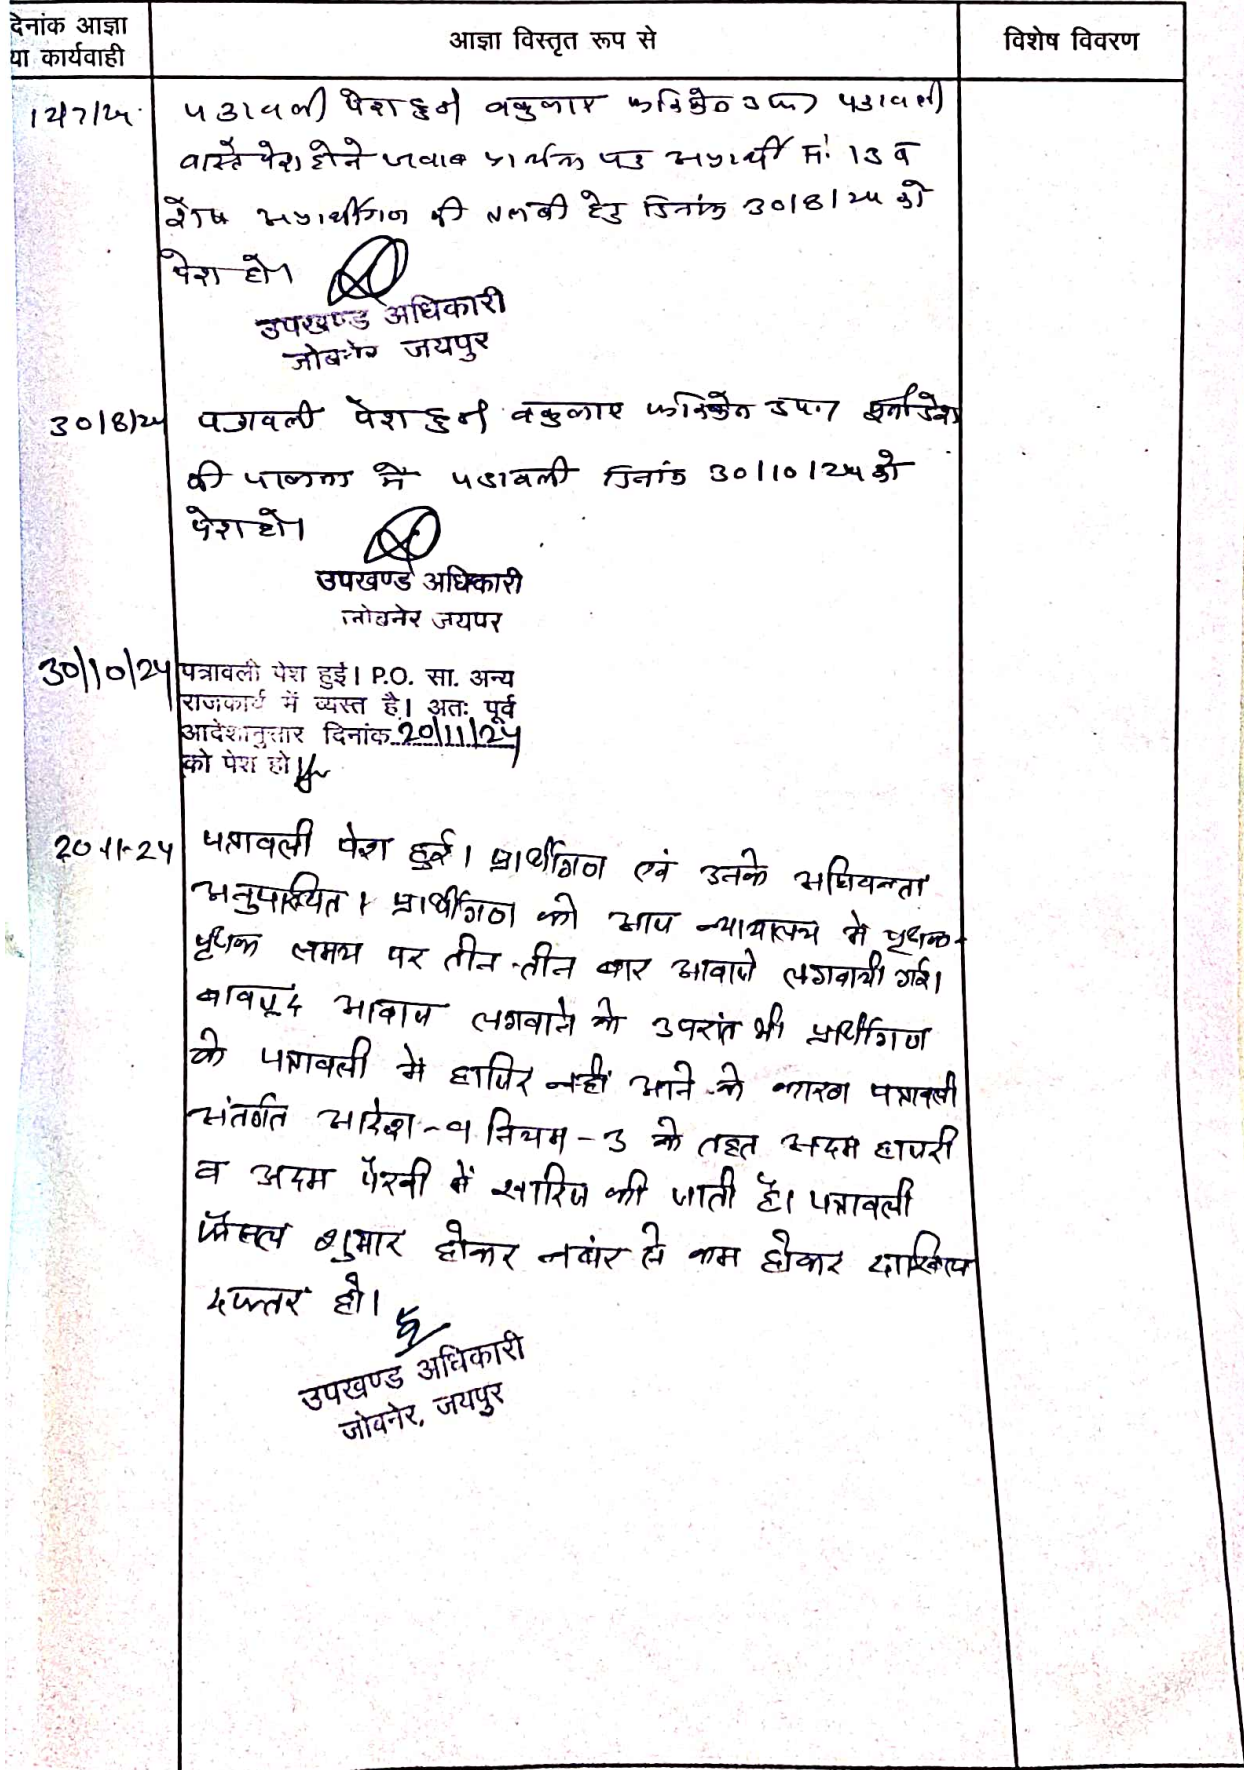 दिनांक आज्ञा
या कार्यवाही
आज्ञा विस्तृत रूप से
विशेष विवरण
पत्रावली पेश हुई वकुलाए फरिकेन उप० पत्रावली
वास्ते पेश होने जवाब प्रार्थना पत्र अप्रार्थी सं. 13 व
शेष अप्रार्थीगण की तलबी हेतु दिनांक 30/8/24 को
पेश हो।
उपखण्ड अधिकारी
जोबनेर जयपुर
30/8/24 पत्रावली पेश हुई वकुलाए फरिकेन उप०
की पालना में पत्रावली दिनांक 30/10/24 को
पेश हो।
उपखण्ड अधिकारी
जोबनेर जयपुर
30/10/24 पत्रावली पेश हुई। P.O. सा. अन्य
राजकार्य में व्यस्त है। अतः पूर्व
आदेशानुसार दिनांक 20/11/24
को पेश हो
20-11-24 पत्रावली पेश हुई। प्रार्थीगण एवं उनके अधिवक्ता
अनुपस्थित। प्रार्थीगण को आज न्यायालय में पृथक-
पृथक समय पर तीन-तीन बार आवाजे लगवायी गई।
बावजूद आवाज लगवाने के उपरांत भी प्रार्थीगण
के पत्रावली में हाजिर नहीं आने के कारण पत्रावली
अंतर्गत आदेश-9 नियम-3 के तहत अदम हाजरी
व अदम पैरवी में खारिज की जाती है। पत्रावली
फैसल शुमार होकर नंबर से कम होकर दाखिल
दफ्तर हो।
उपखण्ड अधिकारी
जोबनेर, जयपुर